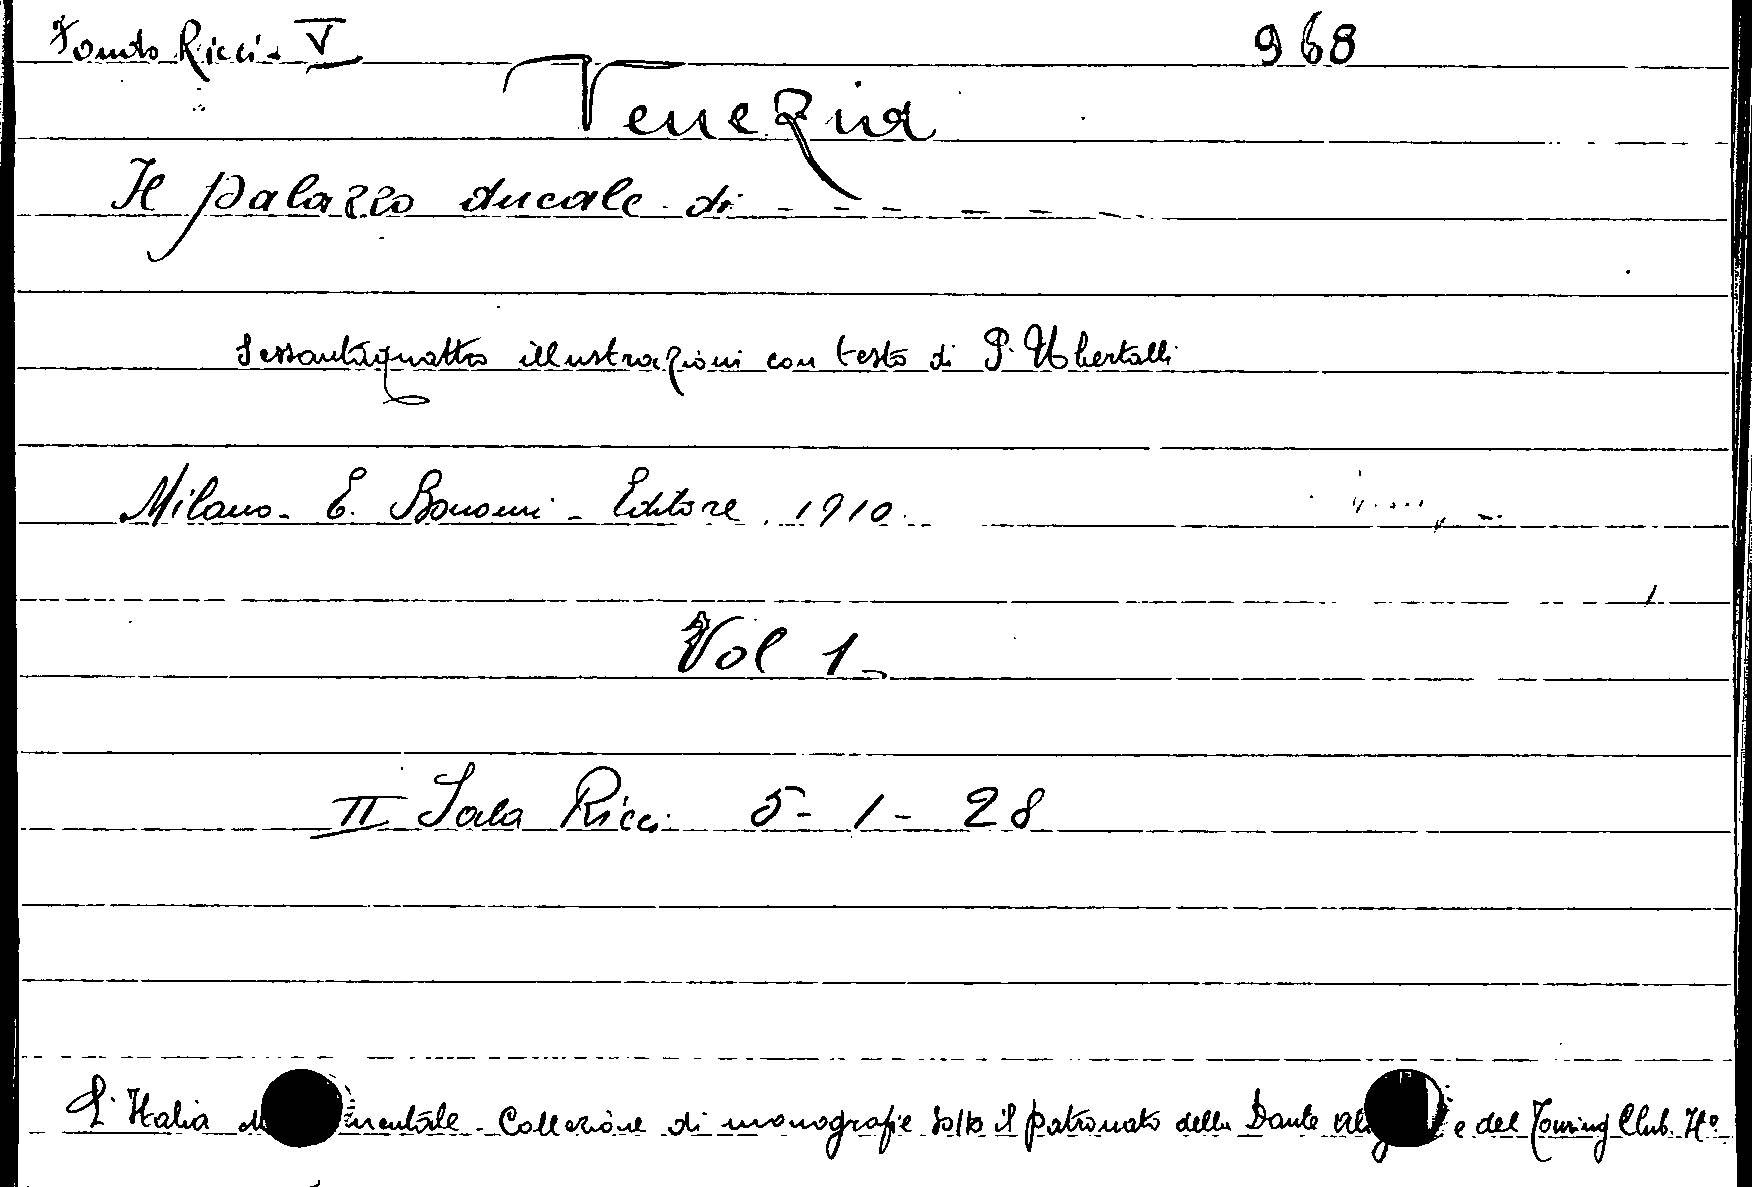 Fondo Ricci - V 968
Venezia
Il palazzo ducale di - - - - - -
Sessantaquattro illustrazioni con testo di P. Ubertalli
Milano - E. Bonomi - Editore 1910
Vol 1 -
II Sala Ricci 5 - 1 - 28
L'Italia mentale - Collezione di monografie sotto il patronato della Dante e del Touring Club. It°